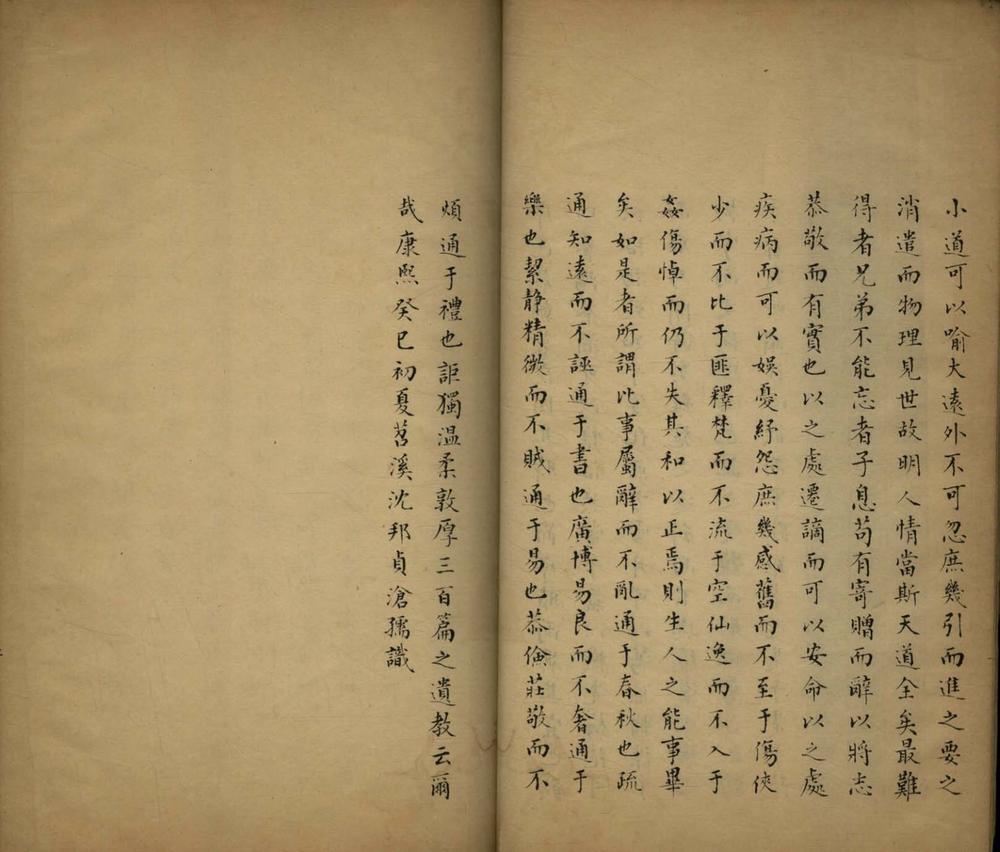 小道可以喻大遠外不可忽庶幾引而進之要之
消遣而物理見世故明人情當斯天道全矣最難
得者兄弟不能忘者子息苟有寄贈而辭以將志
恭敬而有實也以之處遷謫而可以安命以之處
疾病而可以娛憂紓怨庶幾感舊而不至于傷俠
少而不比于匪釋梵而不流于空仙逸而不入于
姦傷悼而仍不失其和以正焉則生人之能事畢
矣如是者所謂比事屬辭而不亂通于春秋也疏
通知遠而不誣通于書也廣博易良而不奢通于
樂也絜静精微而不賊通于易也恭儉莊敬而不
煩通于禮也詎獨温柔敦厚三百篇之遺教云爾
哉康熙癸巳初夏苕溪沈邦貞滄孺識